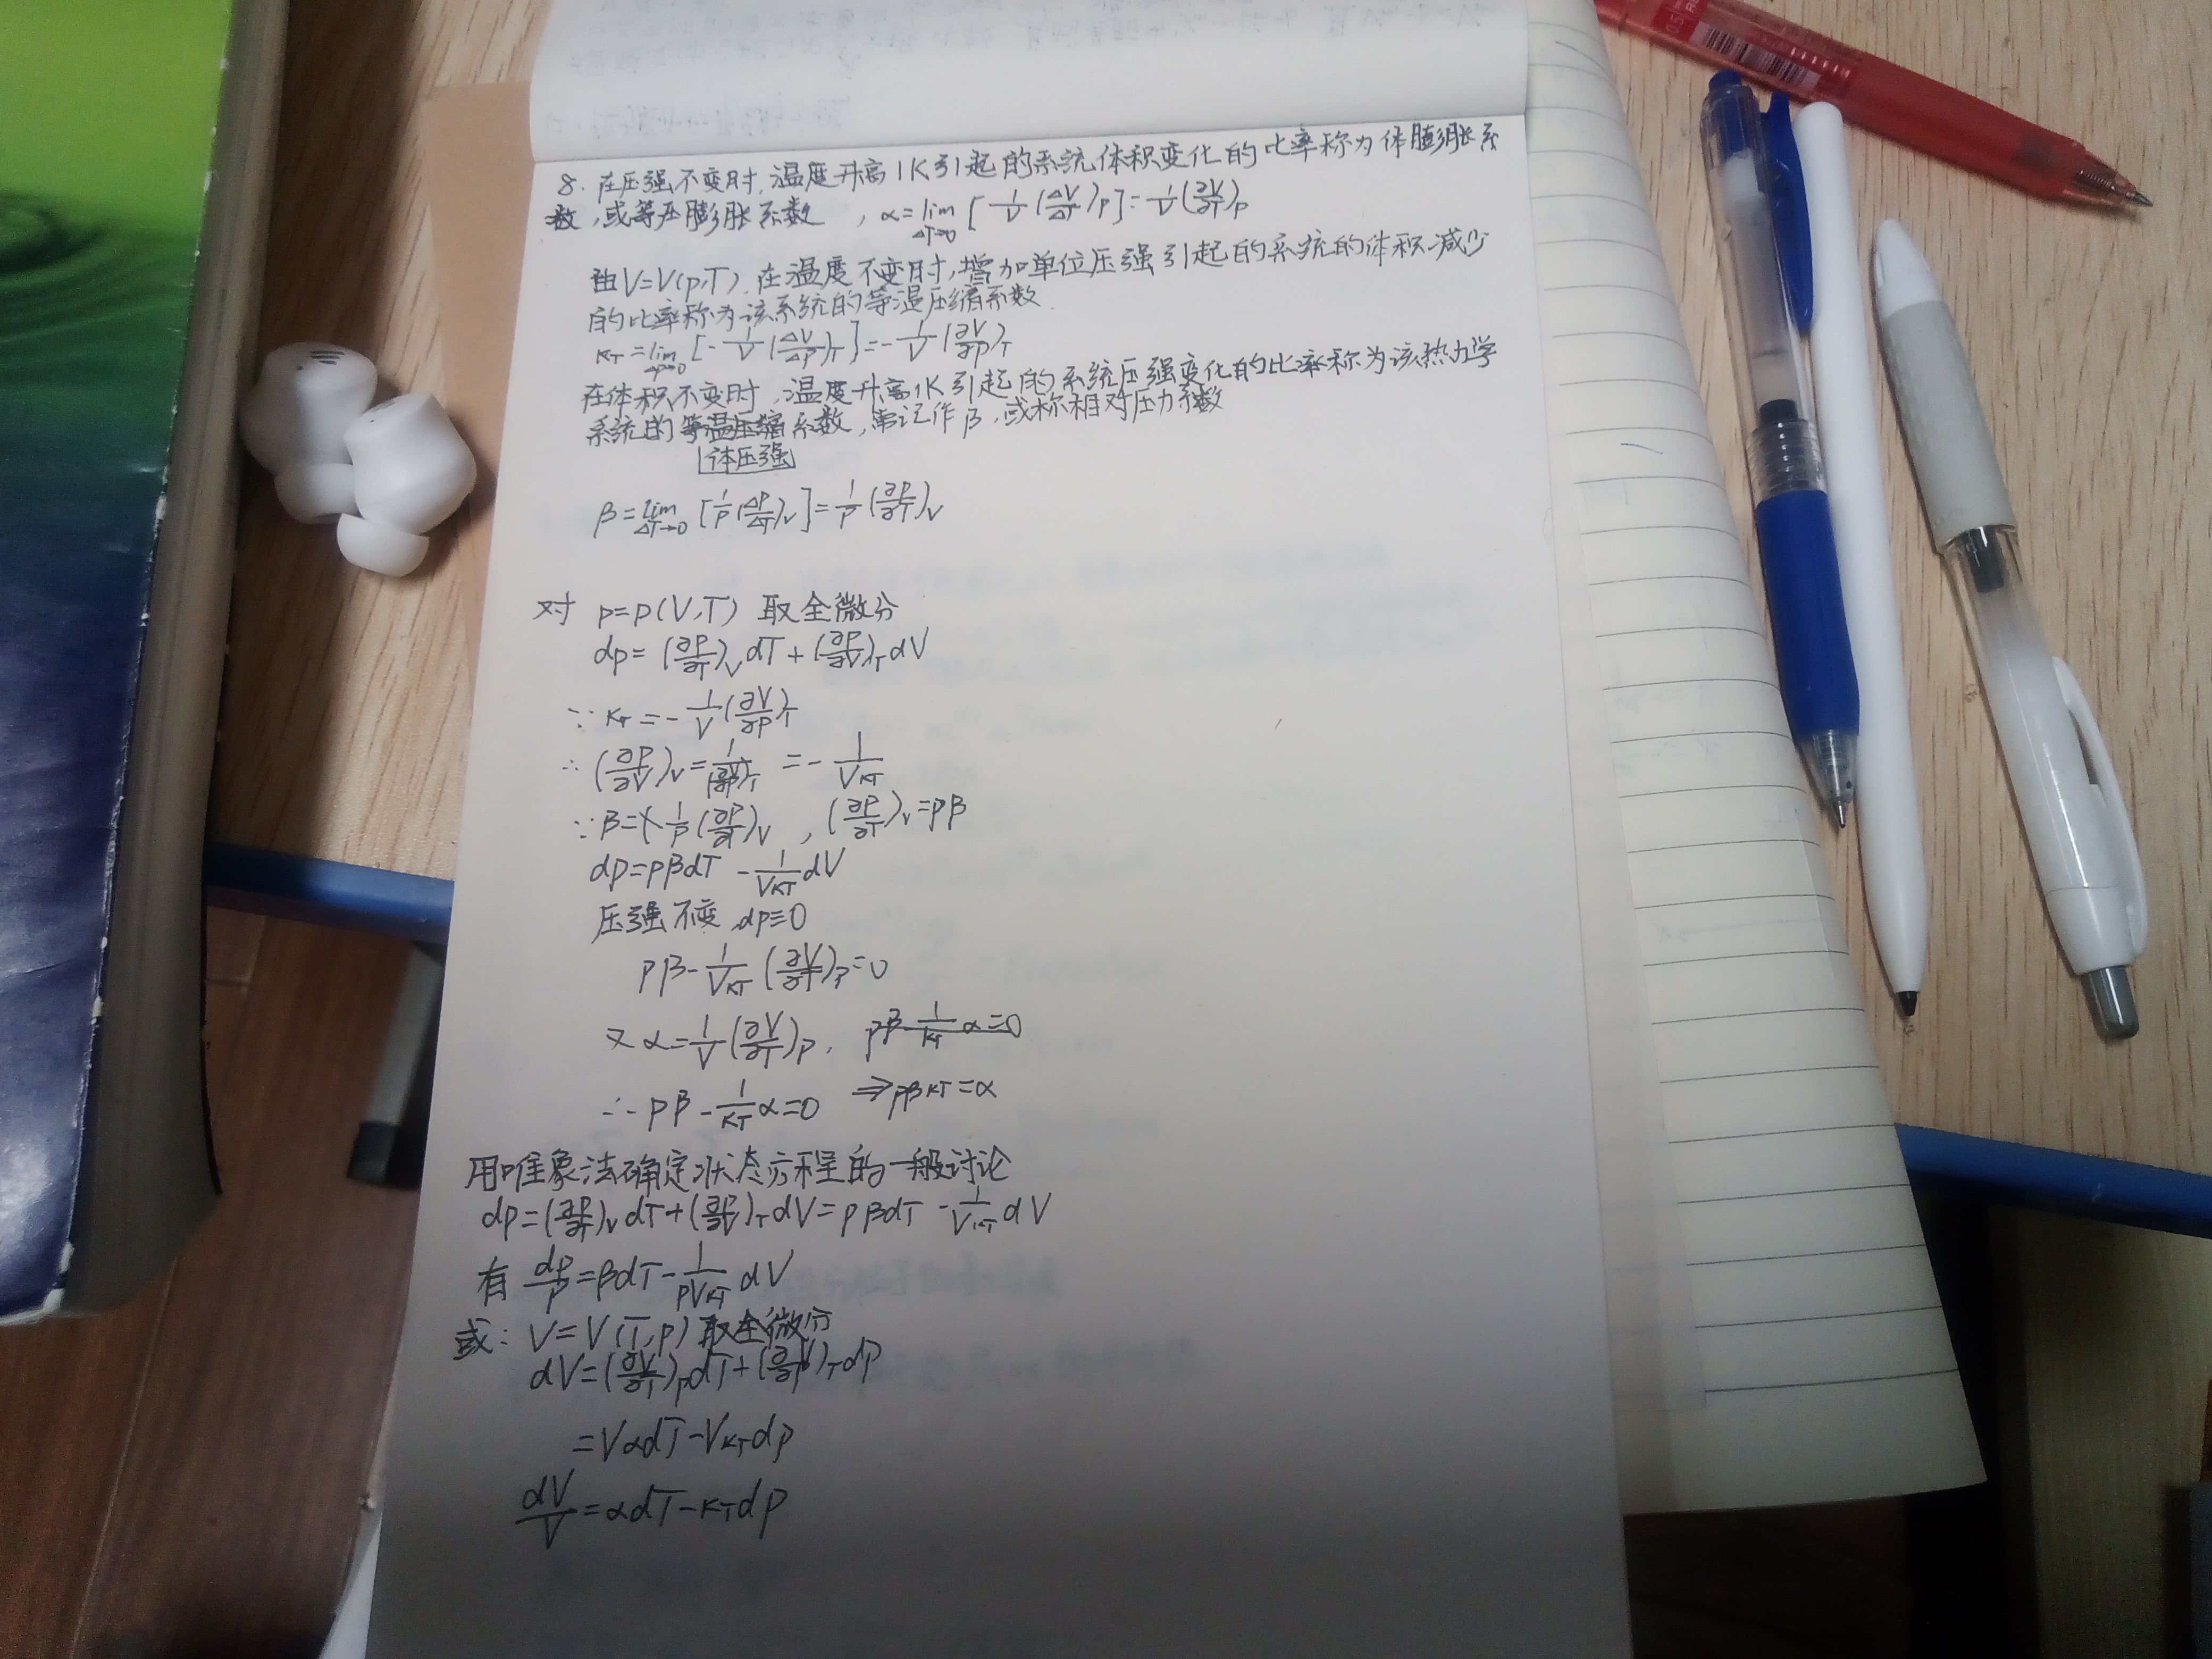 8. 在压强不变时,温度升高1K引起的系统体积变化的比率称为体膨胀系
数,或等压膨胀系数 , α=lim[ΔT→0] [ 1/V (ΔV/ΔT)p ]=1/V(∂V/∂T)p
由V=V(p,T),在温度不变时,增加单位压强引起的系统的体积减少
的比率称为该系统的等温压缩系数.
κT=lim[Δp→0] [-1/V(ΔV/Δp)T]=-1/V(∂V/∂p)T
在体积不变时,温度升高1K引起的系统压强变化的比率称为该热力学
系统的等温压缩系数,常记作β,或称相对压力系数
体压强
β=lim[ΔT→0] [1/p(Δp/ΔT)V]=1/p(∂p/∂T)V
对 p=p(V,T) 取全微分
dp=(∂p/∂T)V dT+(∂p/∂V)T dV
∵ κT=-1/V(∂V/∂p)T
∴ (∂p/∂V)V=1/(∂V/∂p)T =-1/VκT
∵β=1/p(∂p/∂T)V , (∂p/∂T)V=pβ
dp=pβdT-1/VκT dV
压强不变,dp=0
pβ-1/VκT(∂V/∂T)p=0
又α=1/V(∂V/∂T)p, pβ-1/κT α=0
∴pβ-1/κT α=0 ⇒pβκT=α
用唯象法确定状态方程的一般讨论
dp=(∂p/∂T)V dT+(∂p/∂V)T dV=pβdT-1/VκT dV
有 dp/p=βdT-1/pVκT dV
或: V=V(T,p)取全微分
dV=(∂V/∂T)p dT+(∂V/∂p)T dp
=VαdT-VκTdp
dV/V=αdT-κTdp